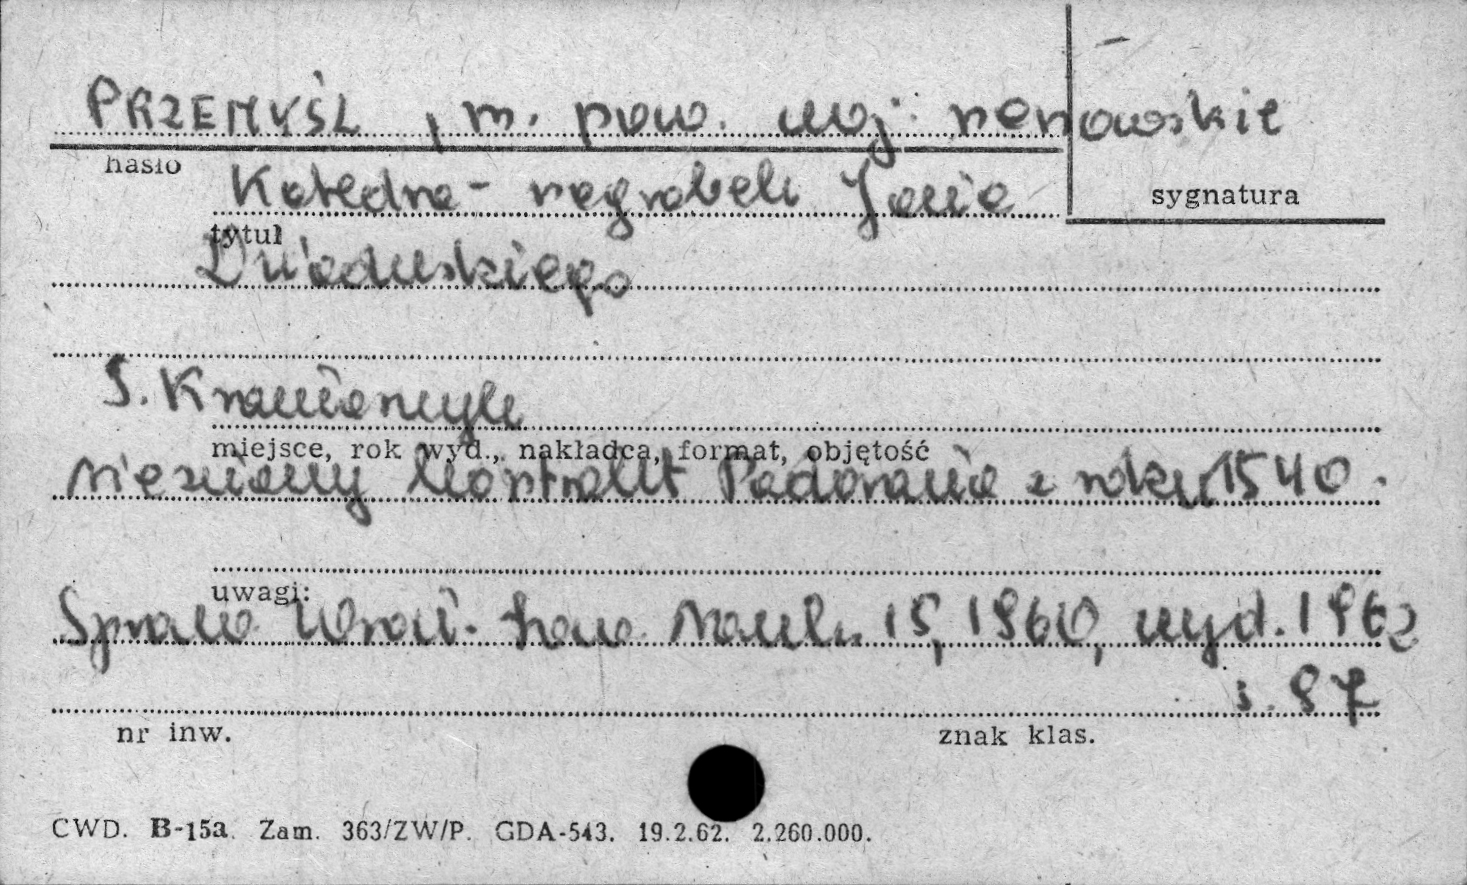 PRZEMYŚL, m. pow. woj. rzeszowskie
hasło
Katedra - nagrobek Jana
sygnatura
tytuł
Dziaduskiego
S. Krawieńczyk
miejsce, rok wyd., nakładca, format, objętość
nieznany kontrakt Padovana z roku 1540.
uwagi:
Spraw. Wroc. Tow. Nauk. 15, 1960, wyd. 1962
s. 87
nr inw.
znak klas.
CWD. B-15a. Zam. 363/ZW/P. GDA-543. 19.2.62. 2.260.000.